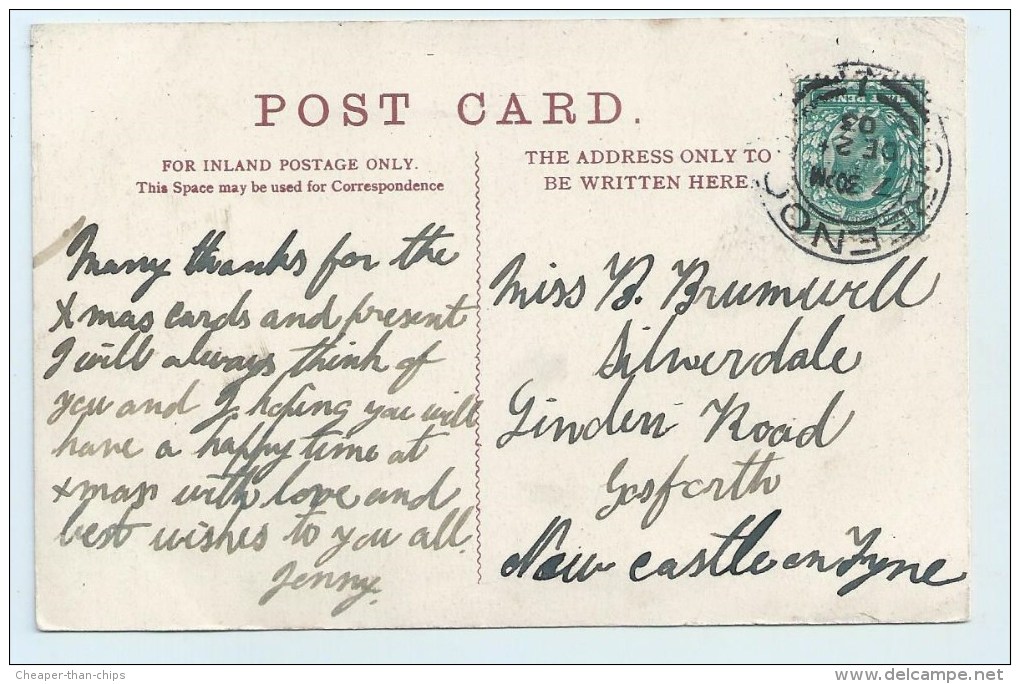 POST CARD.
FOR INLAND POSTAGE ONLY.
This Space may be used for Correspondence
THE ADDRESS ONLY TO
BE WRITTEN HERE
Many thanks for the
Xmas cards and present
I will always think of
you and I hoping you will
have a happy time at
xmas with love and
best wishes to you all.
Jenny.
Miss B. Brumwell
Silverdale
Linden Road
Gosforth
New castle on Tyne
HALF PENNY
GREENO
7 30 PM
DE 24
03
Cheaper-than-chips
delcampe.net